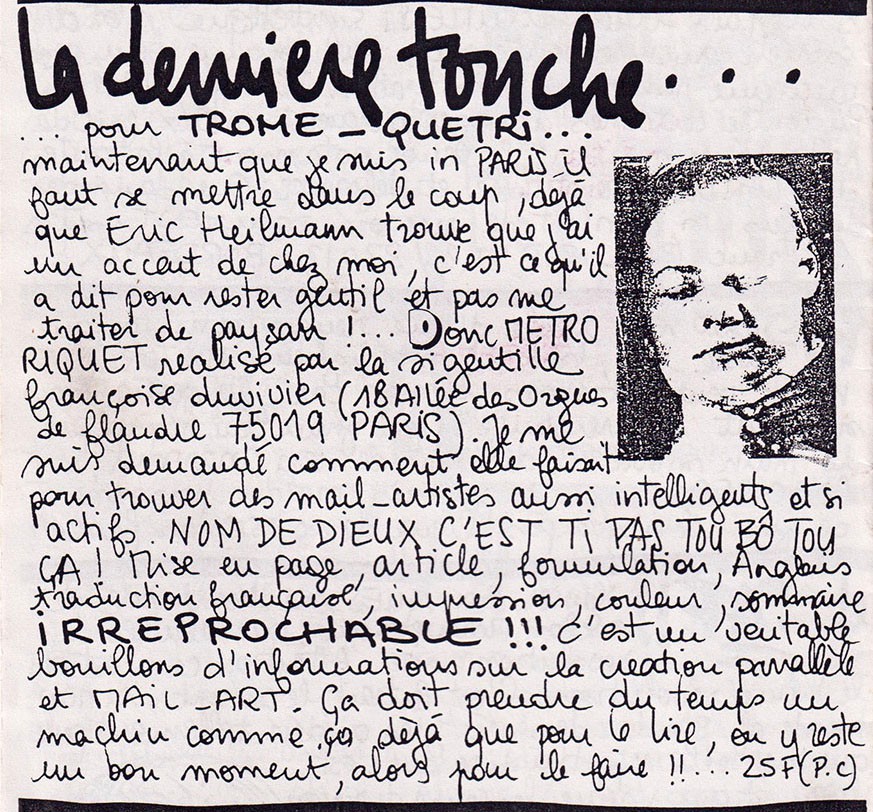 la derniere touche...
... pour TROME - QUETRi...
maintenant que je suis in PARIS il
faut se mettre dans le coup, déjà
que Eric Heilmann trouve que j'ai
un accent de chez moi, c'est ce qu'il
a dit pour rester gentil et pas me
traiter de paysan !.... Donc METRO
RIQUET realisé par la si gentille
françoise duvivier (18 Allée des Orgues
de flandre 75019 PARIS). Je me
suis demandé comment elle faisait
pour trouver des mail-artistes aussi intelligents et si
actifs. NOM DE DIEUX C'EST Ti PAS TOU BÔ TOU
ÇA ! Mise en page, article, formulation, Anglais
traduction française, impression, couleur, sommaire
iRREPROCHABLE !!! c'est un veritable
bouillons d'informations sur la creation parallèle
et MAiL-ART. Ça doit prendre du temps un
machin comme ça déjà que pour le lire, on y reste
un bon moment, alors pour le faire !!... 25F (P.C)